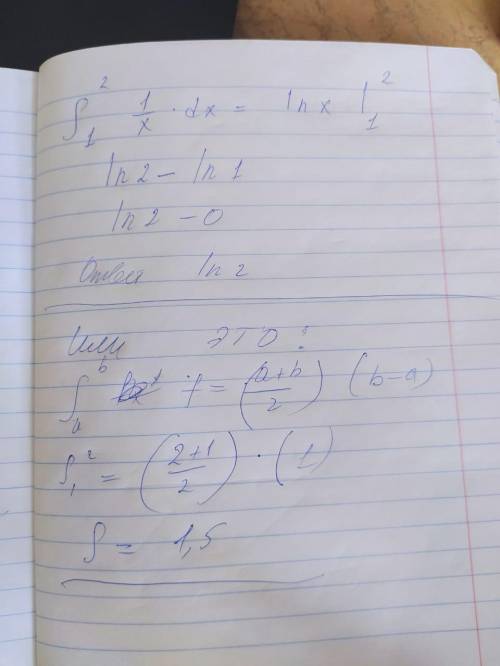 ∫₁² 1/x · dx = ln x |₁²
ln 2 – ln 1
ln 2 – 0
Ответ ln 2
Или это:
∫ₐᵇ f = ((a+b)/2) (b–a)
∫₁² = ((2+1)/2) · (1)
∫ = 1,5